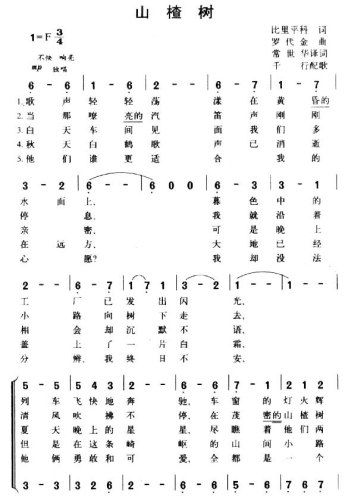 山楂树
1=F 3/4
比里平科 词
罗代金 曲
常世华译词
千 行配歌
不快 响亮
mp 独唱
6 - 6 6 - 7 1 - 7 6 - 6
1.歌 声 轻 轻 荡 漾 在 黄 昏的
2.当 那 嘹 亮的 汽 笛 声 刚 刚
3.白 天 车 间 见 面 我 们 多
4.秋 天 白 鹤 歌 声 已 消 逝
5.他 们 谁 更 适 合 我 的
3 - 2 3 - - 6 - - 6 0 0 2 - 2 2 - 3
水 面 上, 暮 色 中 的
停 息, 我 就 沿 着
亲 密, 可 是 晚 上
在 远 方, 大 地 已 经
心 愿? 我 却 没 法
工 厂 已 发 出 闪 光,
小 路 向 树 下 走 去,
相 会 却 沉 默 不 语,
盖 上 了 一 片 白 霜,
分 辨, 我 终 日 不 安,
列 车 飞 快 地 奔 驰, 车 窗 的 灯 火 辉
清 风 吹 拂 不 停, 在 茂 密的 山 楂 树
夏 天 晚 上 的 星 星, 尽 瞧 着 他 们 两
但 是 在 这 条 崎 岖 的 山 间 小 路
他 俩 勇 敢 和 可 爱, 全 都 是 一 个